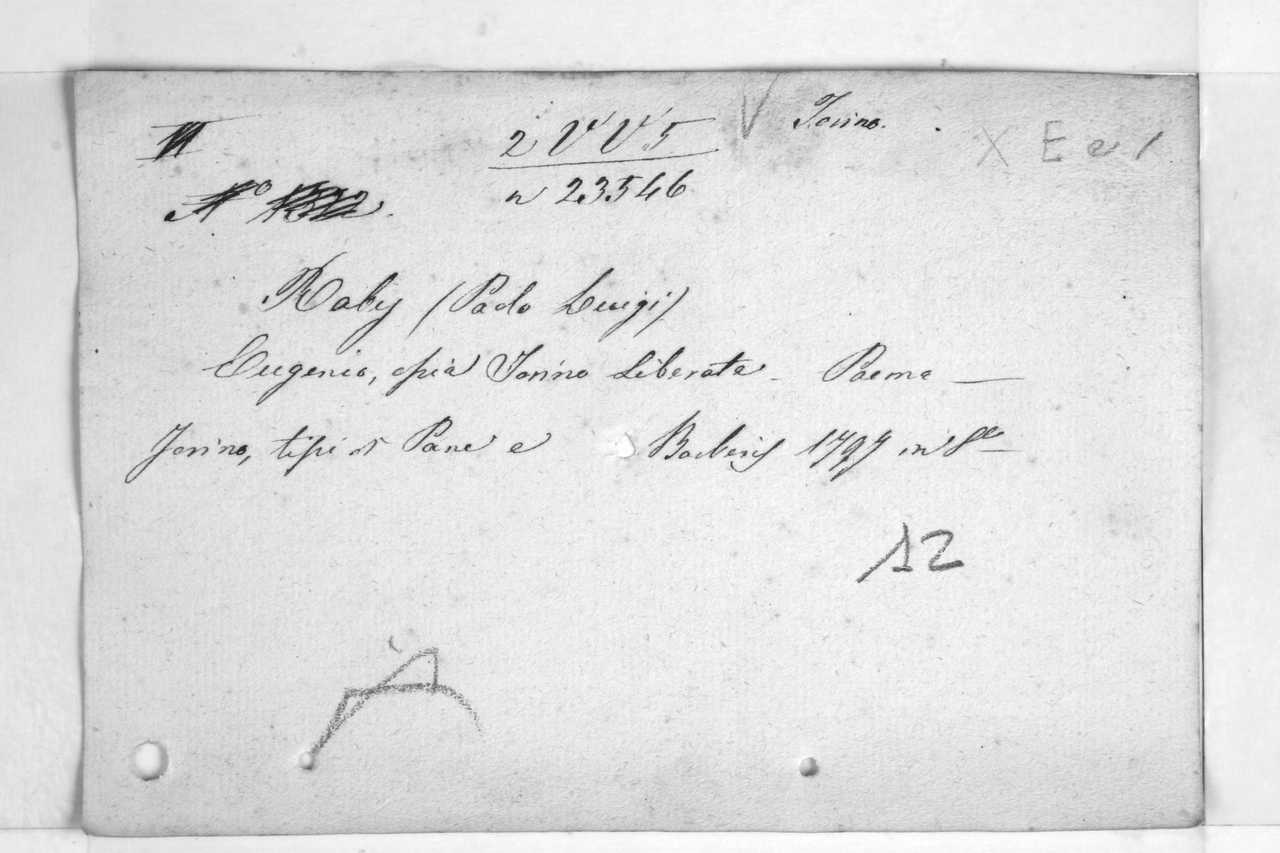 2 V V 5 Torino. X E e 1
n 23546
Raby (Paolo Luigi)
Eugenio, ossia Torino Liberata - Poema —
Torino, tipi di Pane e Barberis 1797 in 8º —
12
A